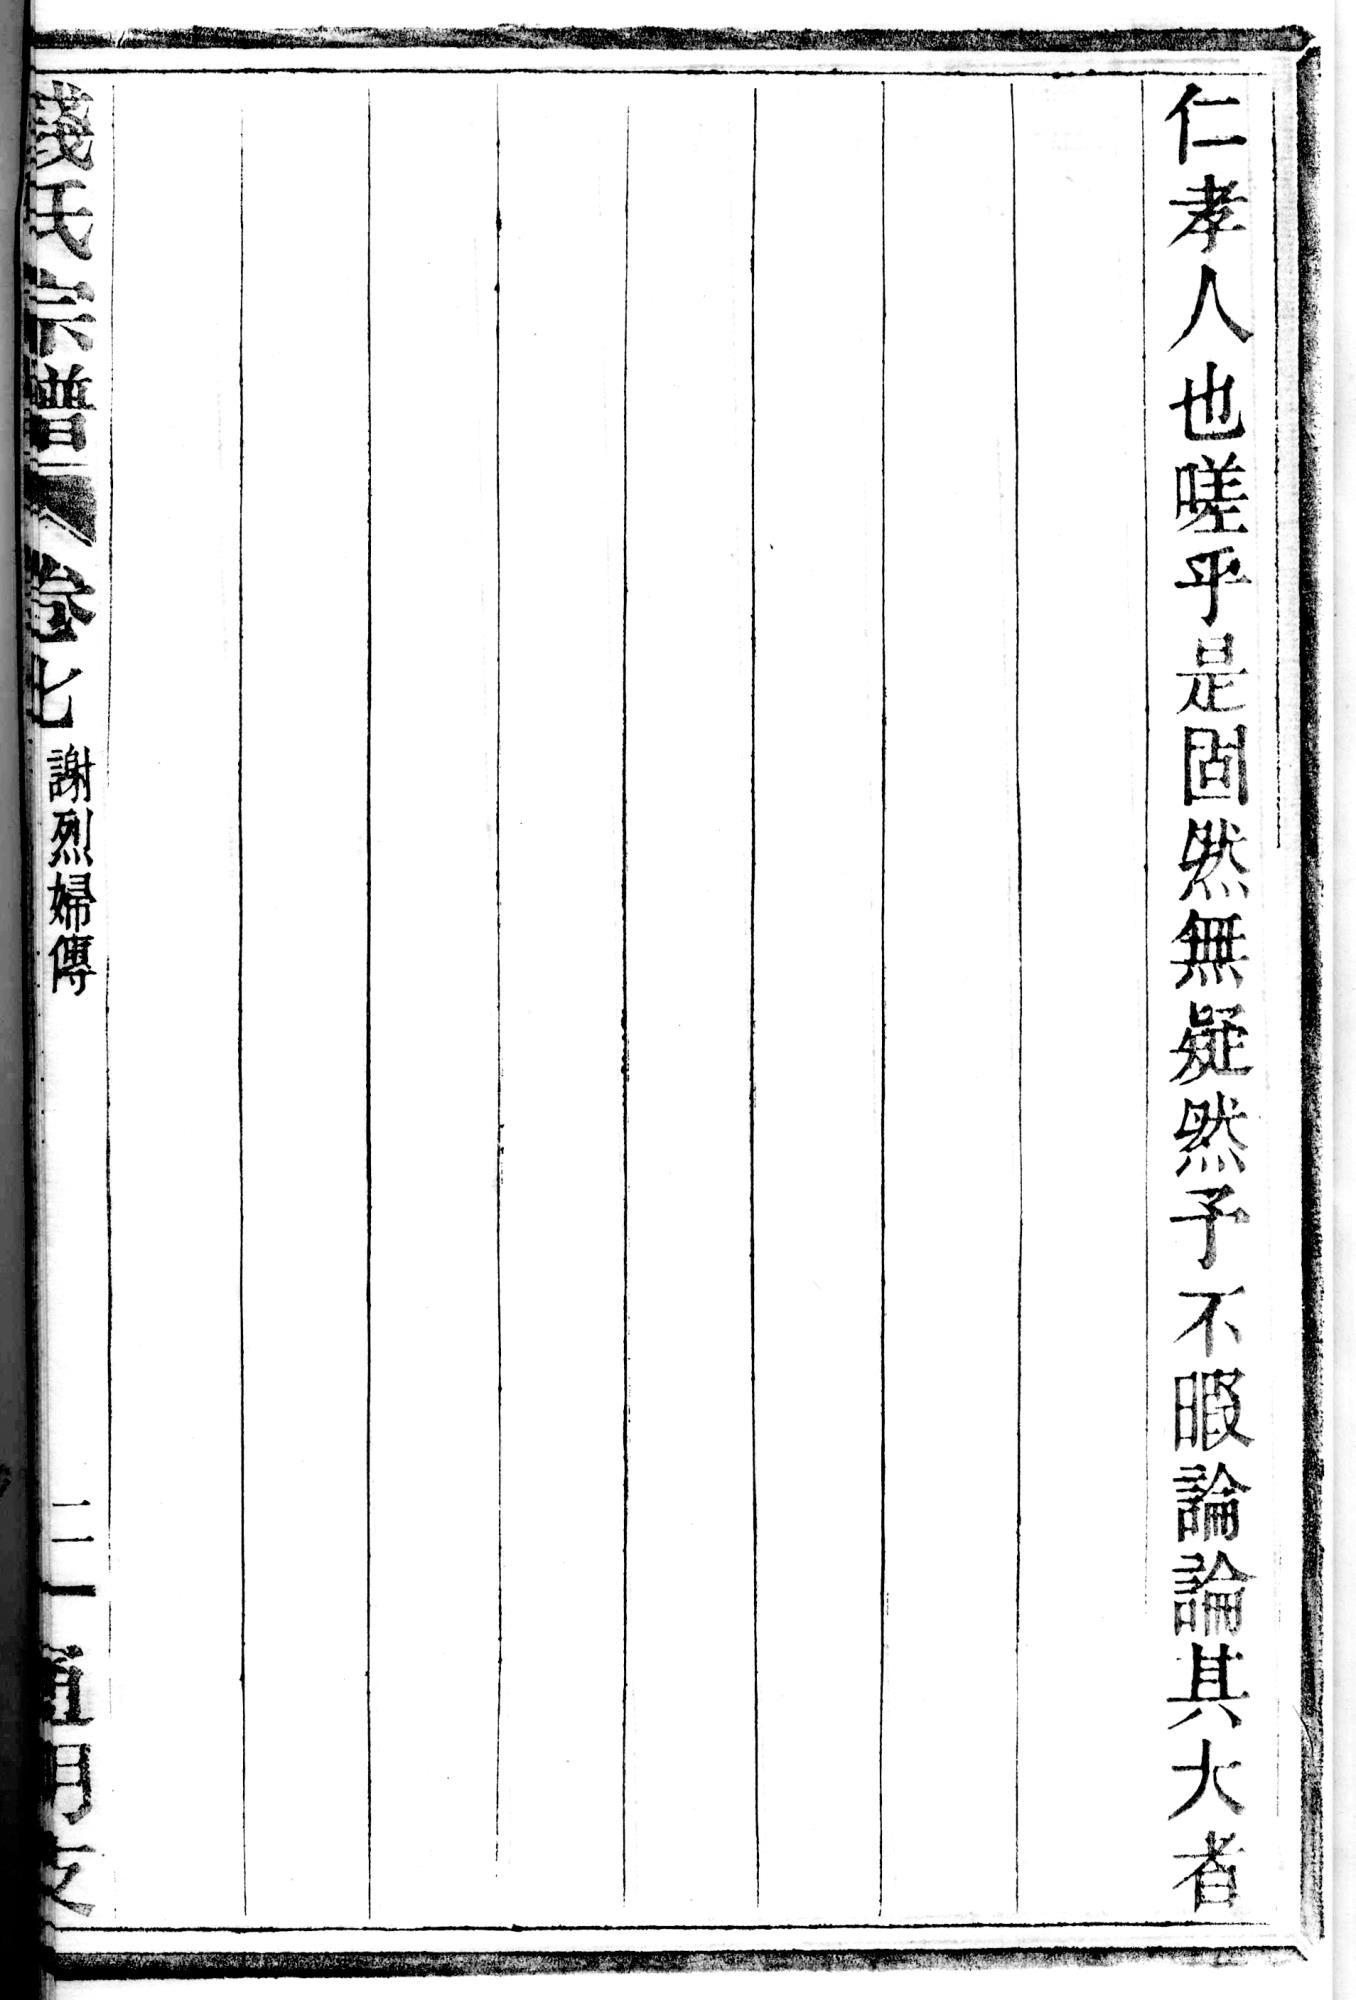 仁孝人也嗟乎是固然無疑然予不暇論論其大者
錢氏宗譜
卷七
謝烈婦傳
通明支